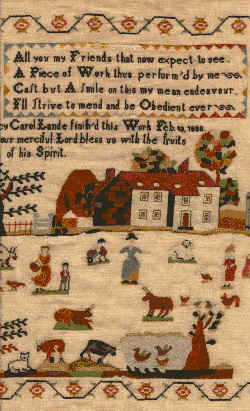 All you my Friends that now expect to see
A Piece of Work thus perform'd by me
Cast but A smile on this my mean endeavour
I'll strive to mend and be Obedient ever
cy Carol Lande finish'd this Work Feb.
our merciful Lord bless us with the fruits
of his Spirit.